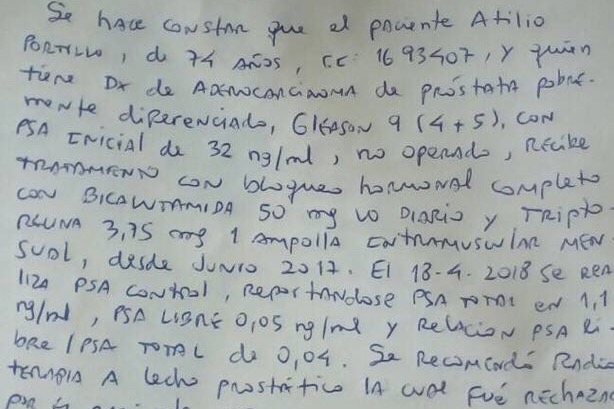 Se hace constar que el paciente Atilio
Portillo, de 74 años, CC: 1693407, y quien
tiene Dx de Adenocarcinoma de próstata pobre-
mente diferenciado, Gleason 9 (4+5), con
PSA Inicial de 32 ng/ml, no operado, recibe
tratamiento con bloqueo hormonal completo
con Bicalutamida 50 mg VO diario y Tripto-
relina 3,75 mg 1 ampolla intramuscular men-
sual, desde Junio 2017. El 18-4-2018 se rea
liza PSA control, reportandose PSA total en 1,1
ng/ml, PSA libre 0,05 ng/ml y relacion PSA li
bre/PSA total de 0,04. Se recomendó Radio
terapia a lecho prostático la cual fué rechaza
por